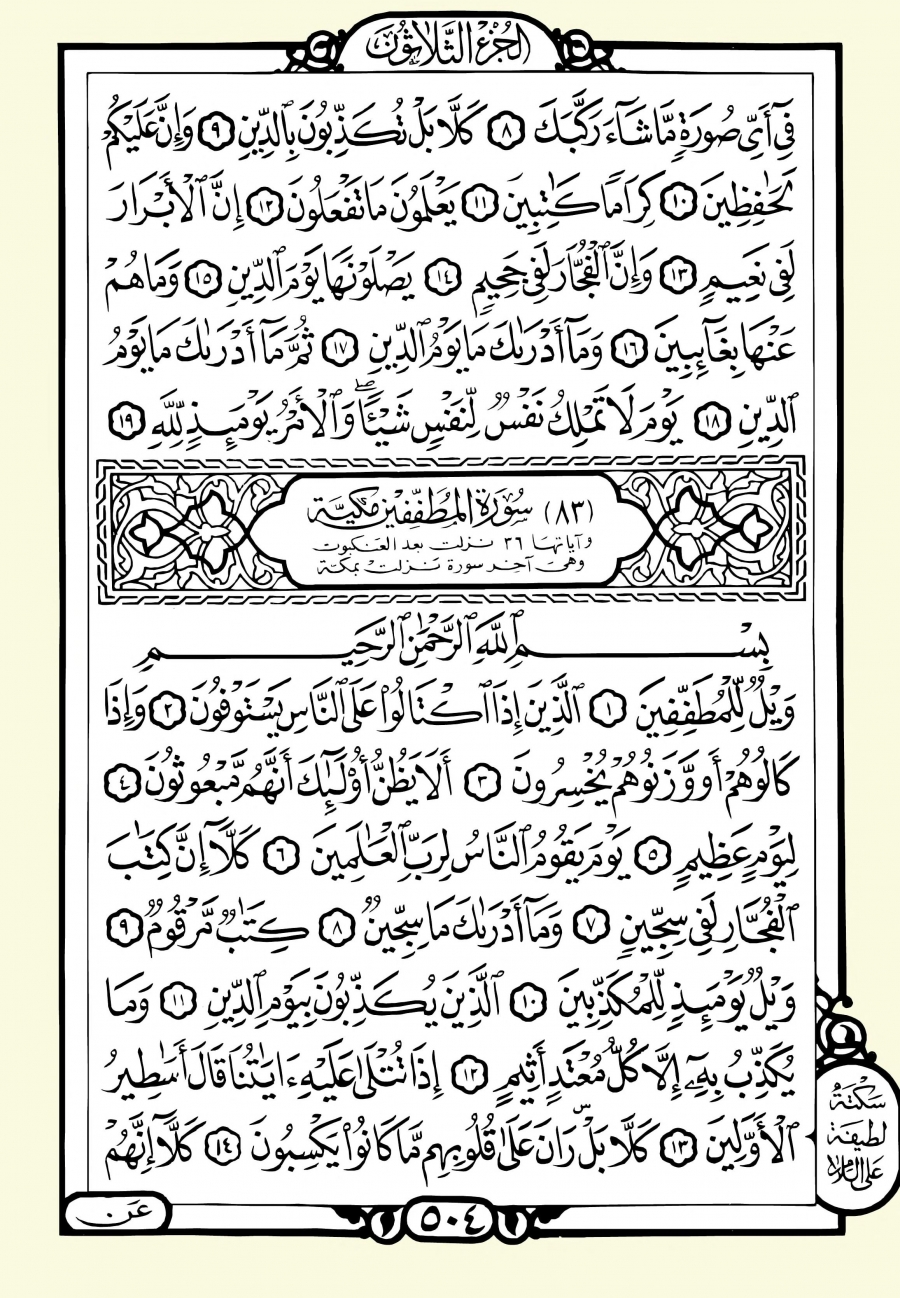 الجزء الثلاثون
فِىٓ أَىِّ صُورَةٖ مَّا شَآءَ رَكَّبَكَ ٨ كَلَّا بَلۡ تُكَذِّبُونَ بِٱلدِّينِ ٩ وَإِنَّ عَلَيۡكُمۡ
لَحَٰفِظِينَ ١٠ كِرَامٗا كَٰتِبِينَ ١١ يَعۡلَمُونَ مَا تَفۡعَلُونَ ١٢ إِنَّ ٱلۡأَبۡرَارَ
لَفِى نَعِيمٖ ١٣ وَإِنَّ ٱلۡفُجَّارَ لَفِى جَحِيمٖ ١٤ يَصۡلَوۡنَهَا يَوۡمَ ٱلدِّينِ ١٥ وَمَا هُمۡ
عَنۡهَا بِغَآئِبِينَ ١٦ وَمَآ أَدۡرَىٰكَ مَا يَوۡمُ ٱلدِّينِ ١٧ ثُمَّ مَآ أَدۡرَىٰكَ مَا يَوۡمُ
ٱلدِّينِ ١٨ يَوۡمَ لَا تَمۡلِكُ نَفۡسٞ لِّنَفۡسٖ شَيۡـٔٗاۖ وَٱلۡأَمۡرُ يَوۡمَئِذٖ لِّلَّهِ ١٩
(٨٣) سُورَةُ المُطَفِّفِين مَكِّيَّة
وآياتها ٣٦ نزلت بعد العنكبوت
وهى آخر سورة نزلت بمكة
بِسۡمِ ٱللَّهِ ٱلرَّحۡمَٰنِ ٱلرَّحِيمِ
وَيۡلٞ لِّلۡمُطَفِّفِينَ ١ ٱلَّذِينَ إِذَا ٱكۡتَالُواْ عَلَى ٱلنَّاسِ يَسۡتَوۡفُونَ ٢ وَإِذَا
كَالُوهُمۡ أَو وَّزَنُوهُمۡ يُخۡسِرُونَ ٣ أَلَا يَظُنُّ أُوْلَٰٓئِكَ أَنَّهُم مَّبۡعُوثُونَ ٤
لِيَوۡمٍ عَظِيمٖ ٥ يَوۡمَ يَقُومُ ٱلنَّاسُ لِرَبِّ ٱلۡعَٰلَمِينَ ٦ كَلَّآ إِنَّ كِتَٰبَ
ٱلۡفُجَّارِ لَفِى سِجِّينٖ ٧ وَمَآ أَدۡرَىٰكَ مَا سِجِّينٞ ٨ كِتَٰبٞ مَّرۡقُومٞ ٩
وَيۡلٞ يَوۡمَئِذٖ لِّلۡمُكَذِّبِينَ ١٠ ٱلَّذِينَ يُكَذِّبُونَ بِيَوۡمِ ٱلدِّينِ ١١ وَمَا
يُكَذِّبُ بِهِۦٓ إِلَّا كُلُّ مُعۡتَدٍ أَثِيمٍ ١٢ إِذَا تُتۡلَىٰ عَلَيۡهِ ءَايَٰتُنَا قَالَ أَسَٰطِيرُ
ٱلۡأَوَّلِينَ ١٣ كَلَّا بَلۡۜ رَانَ عَلَىٰ قُلُوبِهِم مَّا كَانُواْ يَكۡسِبُونَ ١٤ كَلَّآ إِنَّهُمۡ
سكتة
لطيفة
على اللام
عَن
٥٠٤